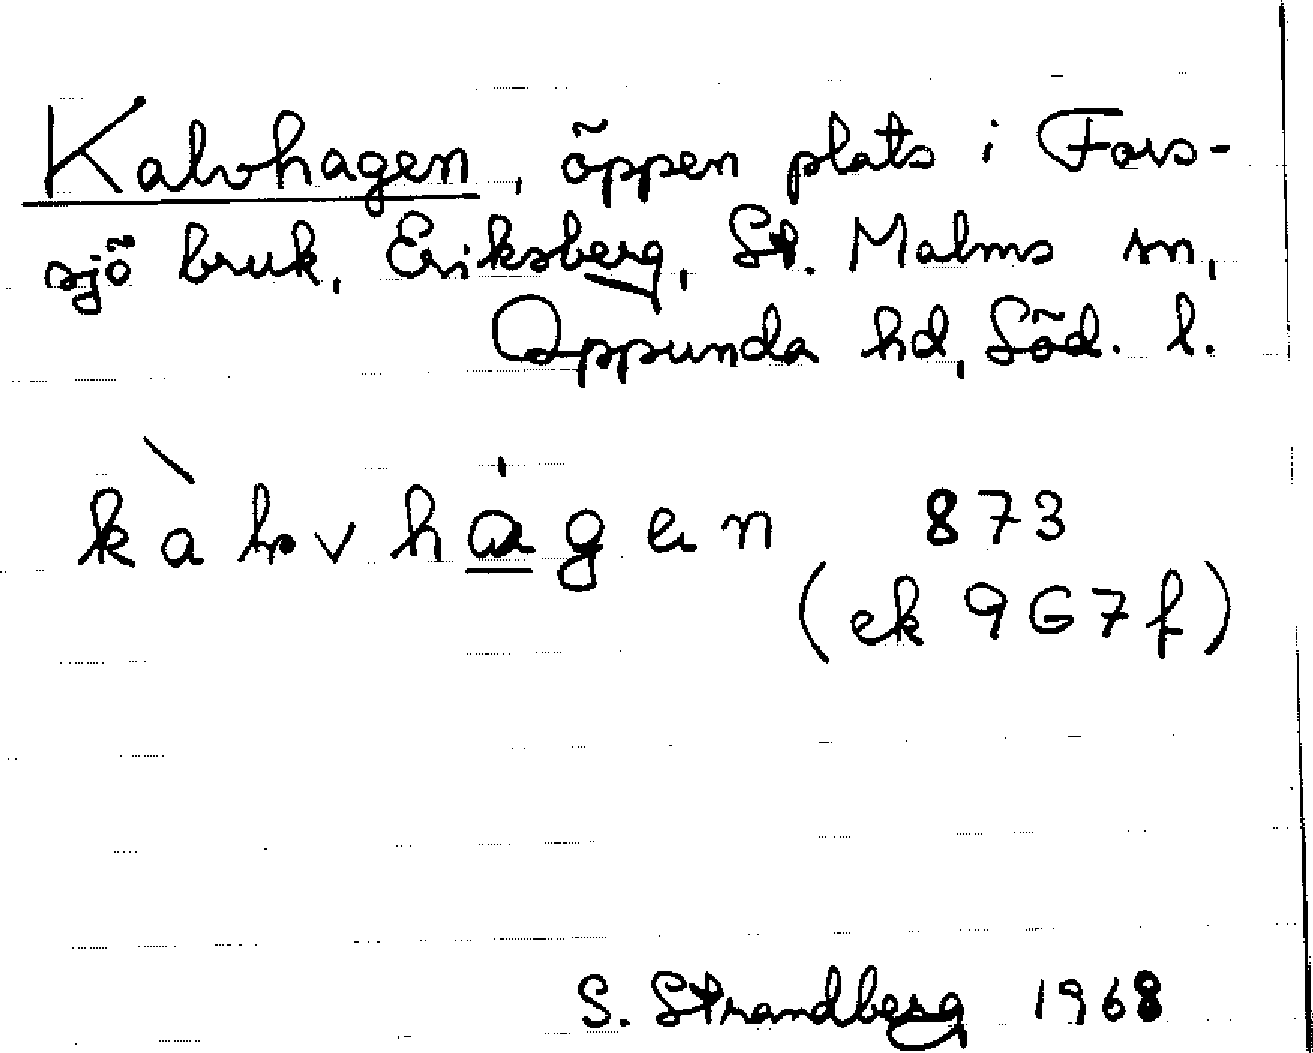 Kalvhagen, öppen plats i Fors-
sjö bruk, Eriksberg, St. Malms sn,
Oppunda hd, Söd. l.
kàlvhagen 873
(ek 9G7f)
S. Strandberg 1968